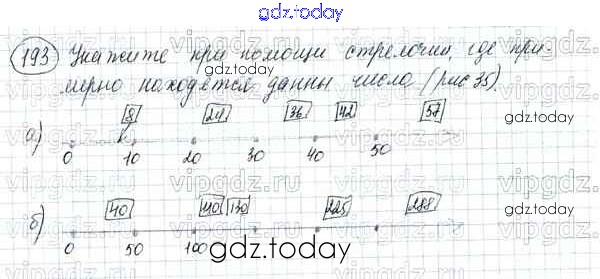 gdz.today
193 Укажите при помощи стрелочки, где при-
мерно находятся данны числа (рис 35).
gdz.today
8 24 36 42 57
gdz.today
а) 0 10 20 30 40 50
vipgdz.ru
40 110 130 225 288
б) 0 50 100
gdz.today